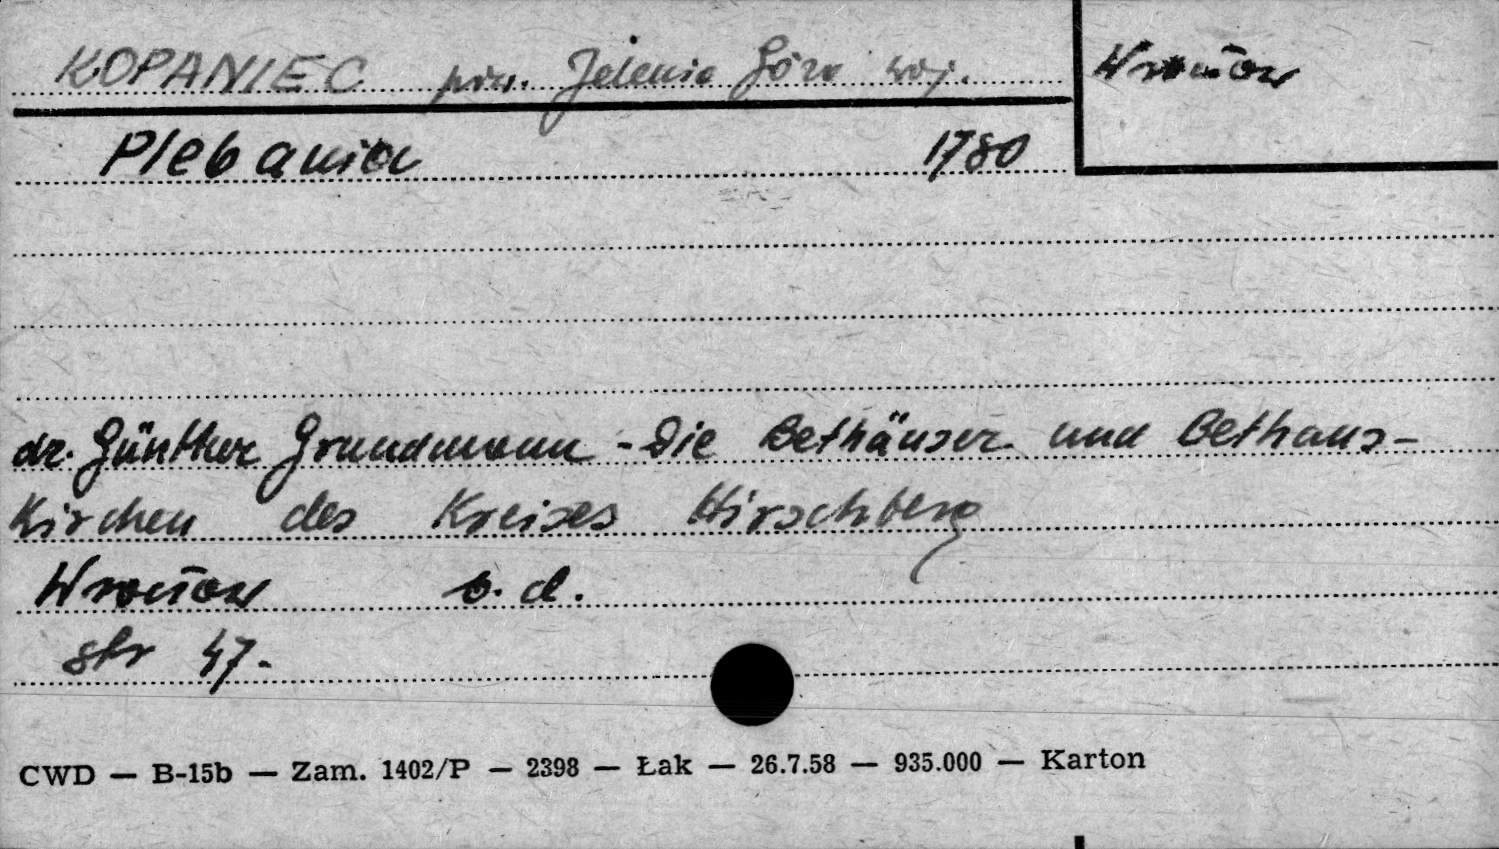 KOPANIEC pow. Jelenia Góra woj. Wrocław
Plebania 1780
dr. Günther Grundmann - Die Bethäuser und Bethaus-
Kirchen des Kreises Hirschberg
Wrocław b. d.
str 47.
CWD — B-15b — Zam. 1402/P — 2398 — Łak — 26.7.58 — 935.000 — Karton